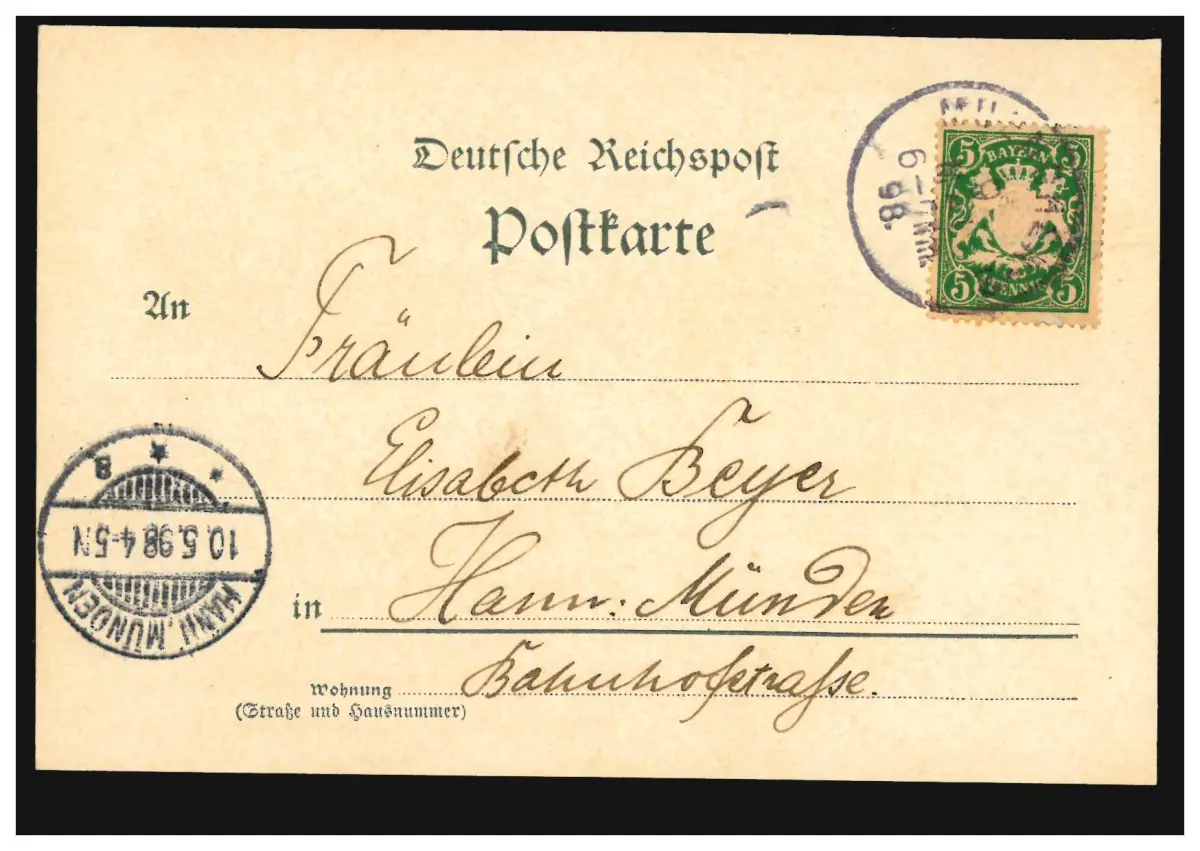 Deutsche Reichspost
Postkarte
5 BAYERN 5
5 PFENNIG 5
6–7 NM
98.
An Fräulein
Elisabeth Beyer
in Hann: Münden
Wohnung Bahnhofstrasse.
(Straße und Hausnummer)
HANN. MÜNDEN
10.5.98 4-5N
* * B